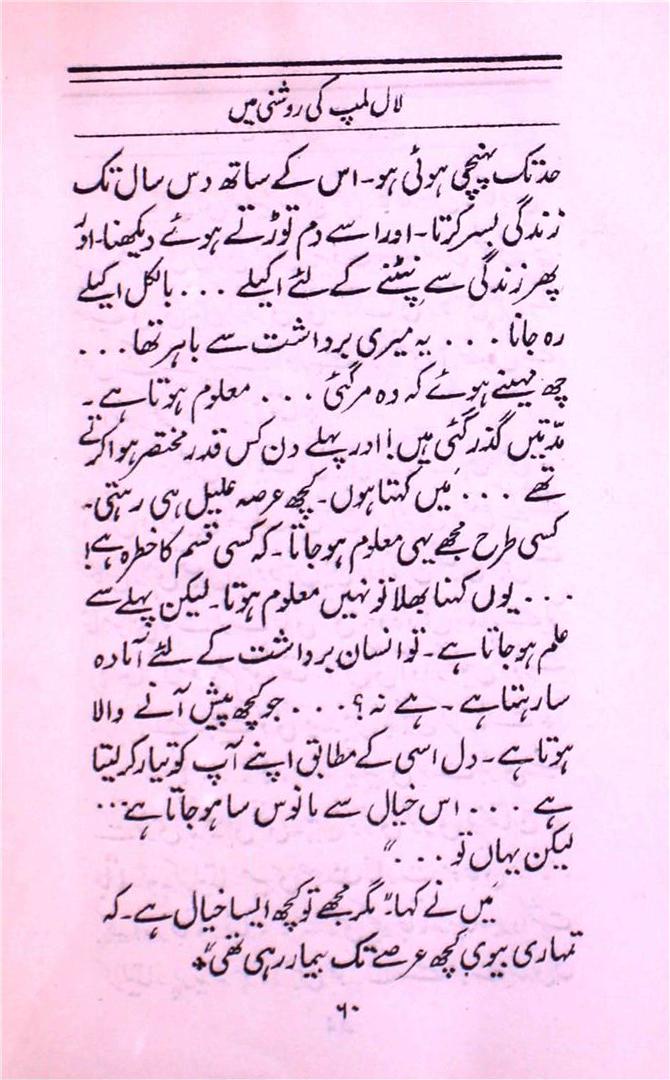 لال لمپ کی روشنی میں
حد تک پہنچی ہوئی ہو۔ اس کے ساتھ دس سال تک
زندگی بسر کرتا۔ اور اسے دم توڑتے ہوئے دیکھنا۔ اور
پھر زندگی سے نپٹنے کے لئے اکیلے ... بالکل اکیلے
رہ جانا ... یہ میری برداشت سے باہر تھا ...
چھ مہینے ہوئے کہ وہ مر گئی ... معلوم ہوتا ہے۔
مدّتیں گذر گئی ہیں! اور پہلے دن کس قدر مختصر ہوا کرتے
تھے ... میں کہتا ہوں۔ کچھ عرصہ علیل ہی رہتی۔
کسی طرح مجھے یہی معلوم ہو جاتا۔ کہ کسی قسم کا خطرہ ہے!
... یوں کہنا بھلا تو نہیں معلوم ہوتا۔ لیکن پہلے سے
علم ہو جاتا ہے۔ تو انسان برداشت کے لئے آمادہ
سا رہتا ہے۔ ہے نہ؟ ... جو کچھ پیش آنے والا
ہوتا ہے۔ دل اسی کے مطابق اپنے آپ کو تیار کر لیتا
ہے ... اس خیال سے مانوس سا ہو جاتا ہے ...
لیکن یہاں تو ..."
میں نے کہا۔ "مگر مجھے تو کچھ ایسا خیال ہے۔ کہ
تمہاری بیوی کچھ عرصے تک بیمار رہی تھی"۔
۶۰